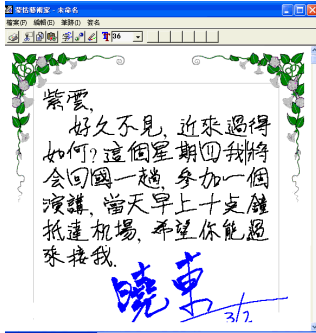 蒙恬藝術家 - 未命名
檔案(F) 編輯(E) 筆跡(I) 簽名
36
紫雲,
好久不見, 近來過得
如何?這個星期四我將
会回國一趟, 參加一個
演講, 當天早上十点鐘
抵達机場, 希望你能過
來接我.
曉東
3/2